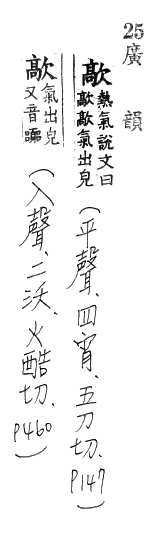 25廣韻
歊熱氣說文曰
歊歊氣出皃
(平聲、四宵、五刀切、P147)
歊氣出皃
又音
(入聲、二沃、火酷切、P460)